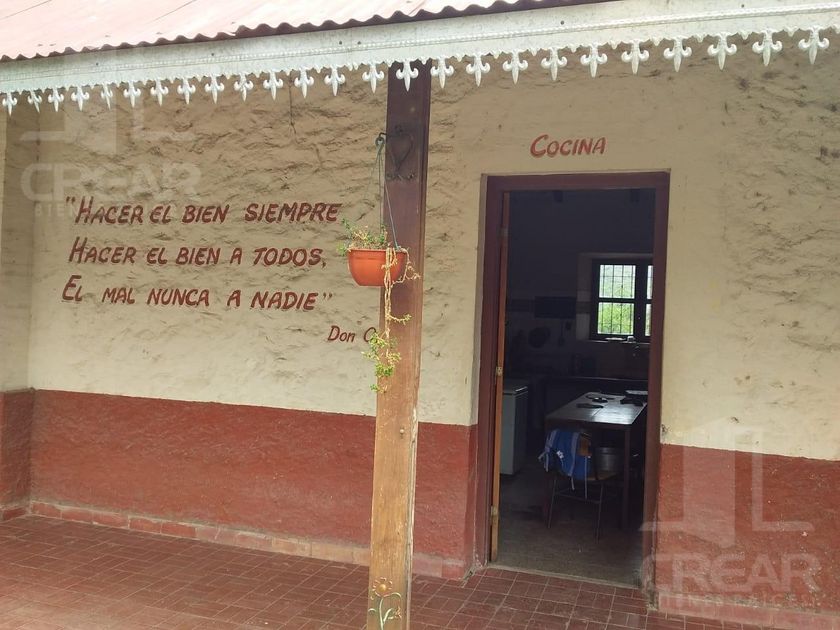 COCINA
"HACER EL BIEN SIEMPRE
HACER EL BIEN A TODOS,
EL MAL NUNCA A NADIE"
Don
CREAR
CREAR